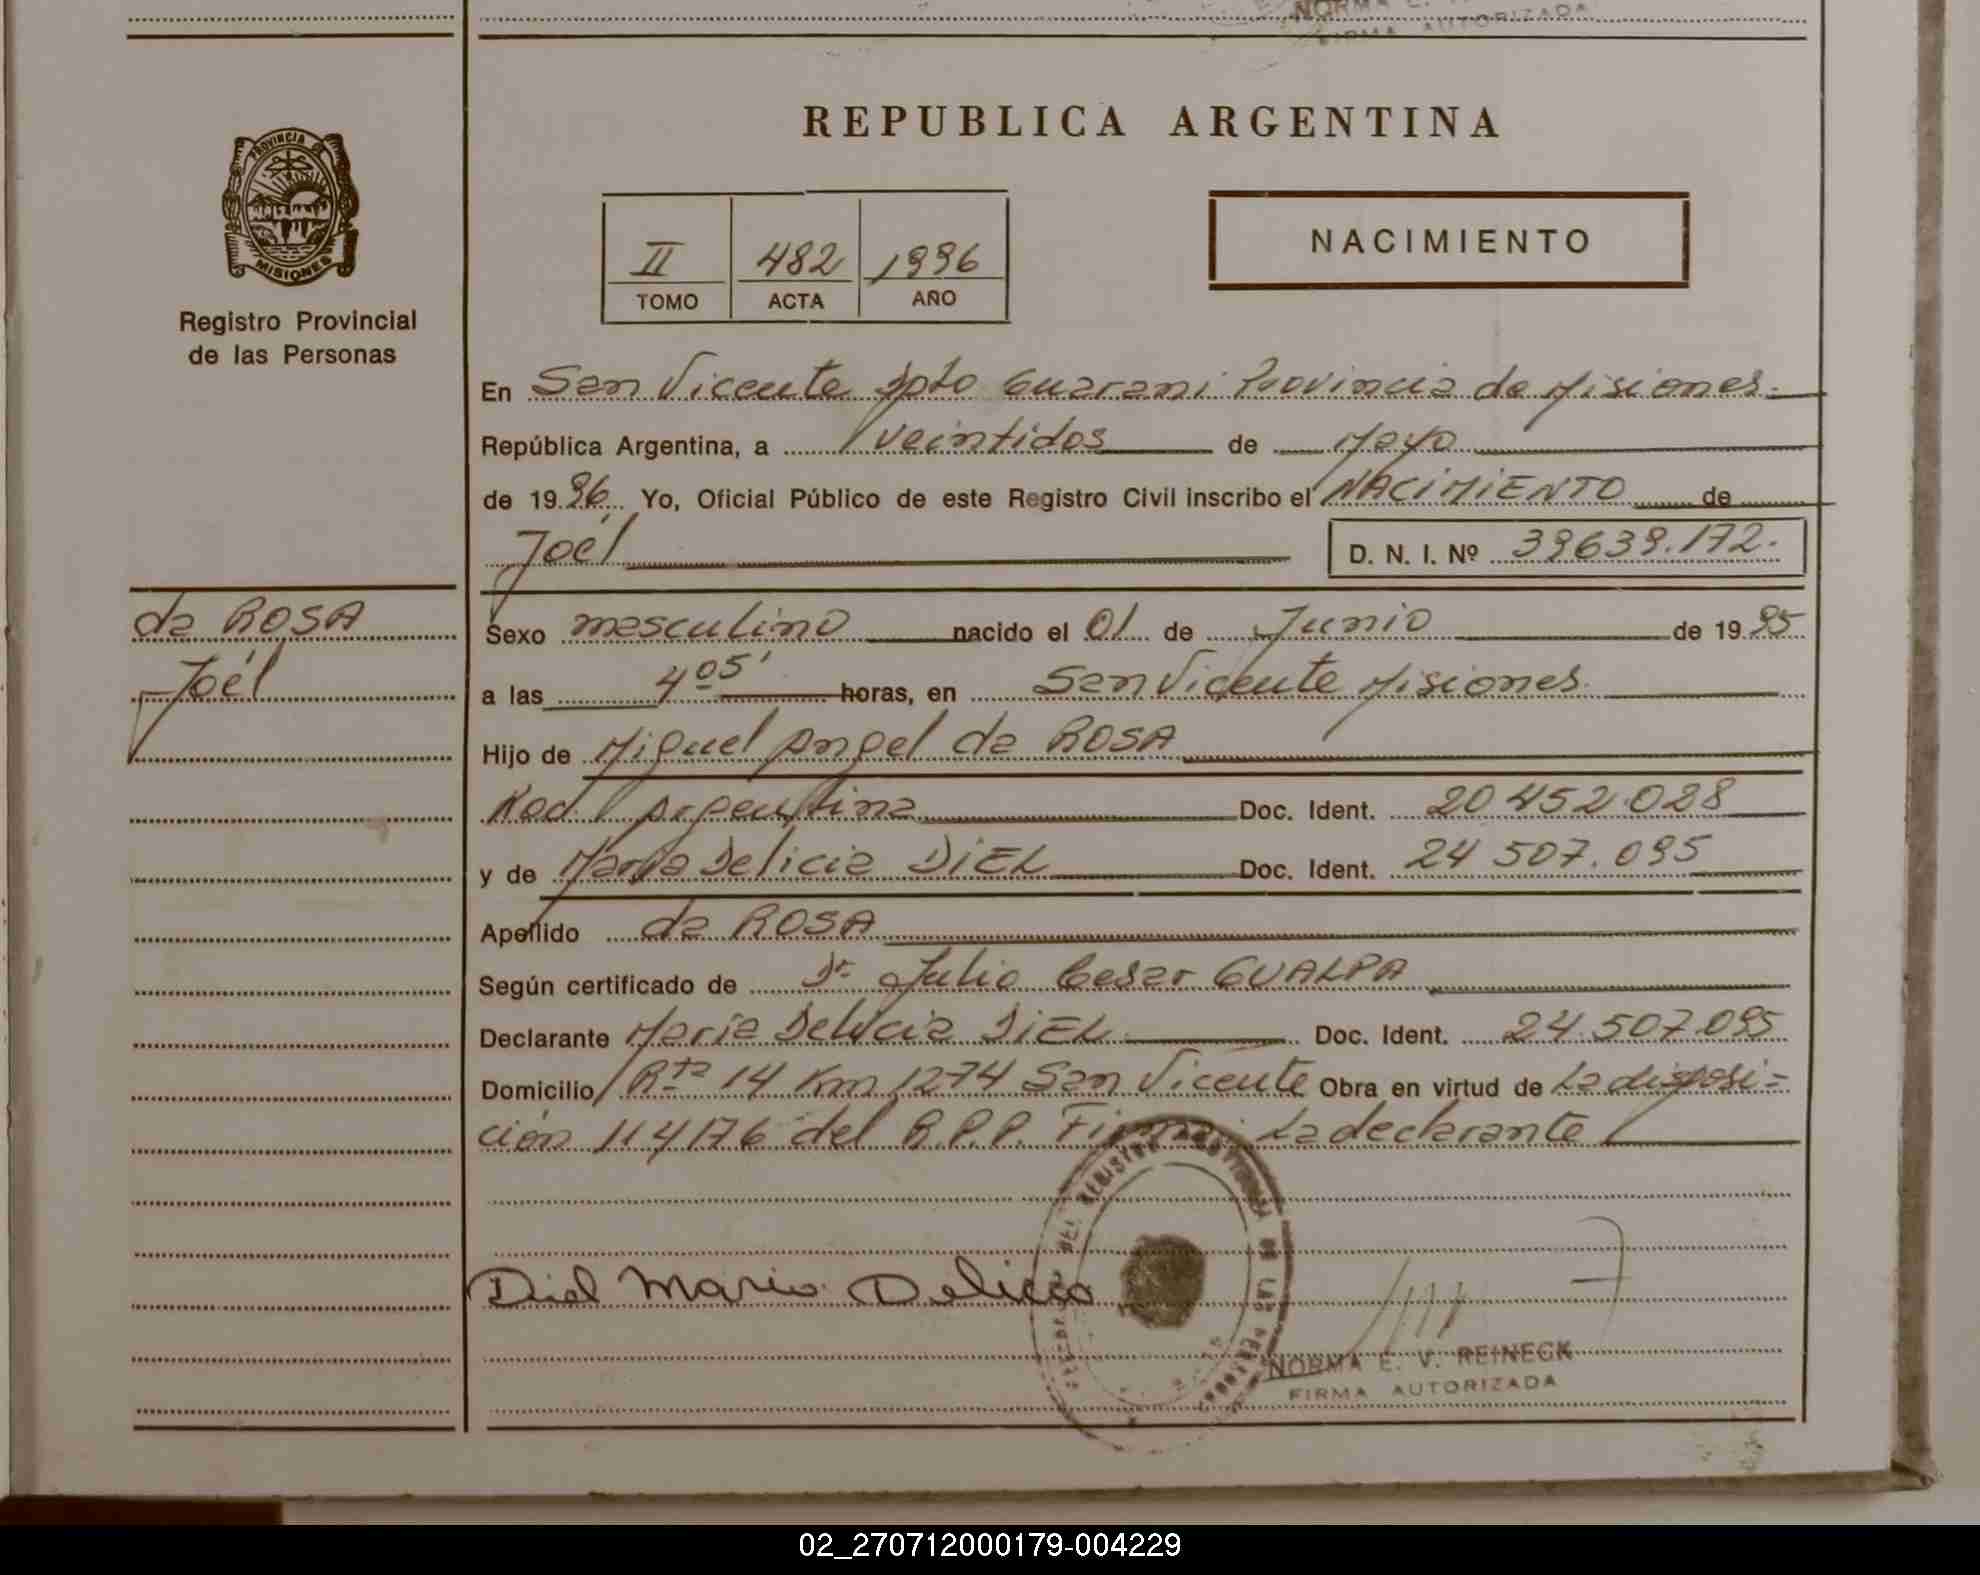 NORMA E.
FIRMA AUTORIZADA
REPUBLICA ARGENTINA
PROVINCIA DE
MISIONES
Registro Provincial
de las Personas
II 482 1996
TOMO ACTA AÑO
NACIMIENTO
En San Vicente Dpto Guarani Provincia de Misiones.
República Argentina, a veintidos de Mayo
de 1996 Yo, Oficial Público de este Registro Civil inscribo el NACIMIENTO de
Joél D. N. I. Nº 39639.172.
de ROSA
Joél
Sexo masculino nacido el 01 de Junio de 1995
a las 4 05' horas, en San Vicente Misiones.
Hijo de Miguel Angel da ROSA
Nad. Argentina Doc. Ident. 20 452.028
y de Maria Delicia DiEL Doc. Ident. 24 507.095
Apellido da ROSA
Según certificado de Dr Julio Cesar GUALPA
Declarante María Delicia DiEL Doc. Ident. 24.507.095
Domicilio Rta 14 Km 1274 San Vicente Obra en virtud de La disposi-
ción 114/76 del R.P.P. Firma: La declarante
Diel Maria Delicia
NORMA E. V. REINECK
FIRMA AUTORIZADA
02_270712000179-004229